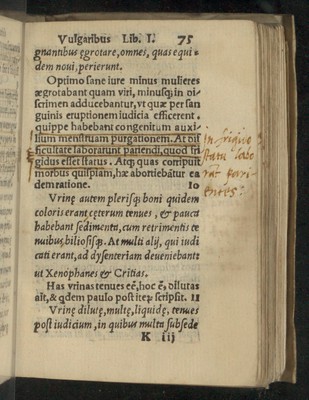 Vulgaribus Lib. I. 75
gnantibus ęgrotare, omnes, quas equi⸗
dem noui, perierunt.
Optimo sane iure minus mulieres
ægrotabant quam viri, minusq; in di⸗
scrimen adducebantur, vt quæ per san
guinis eruptionem iudicia efficerent.
quippe habebant congenitum auxi⸗
lium menstruam purgationem. At dif
ficultate laborarunt pariendi, quod fri
gidus esset status. Atq; quas corripuit
morbus quispiam, hæ abortiebātur ea
dem ratione. 10
Vrinę autem plerisq; boni quidem
coloris erant, cęterum tenues, & pauca
habebant sedimenta, cum retrimentis te
nuibus, biliosisq;. At multi alij, qui iudi
cati erant, ad dysenteriam deueniebant:
ut Xenophanes & Critias.
Has vrinas tenues eē, hoc ē, dilutas
ait, & qdem paulo post iteꝝ scripsit. 11
Vrinę dilutę, multę, liquidę, tenues
post iudicium, in quibus multa subsede
K iij
in frigido
statu labo
rāt pari
entes.